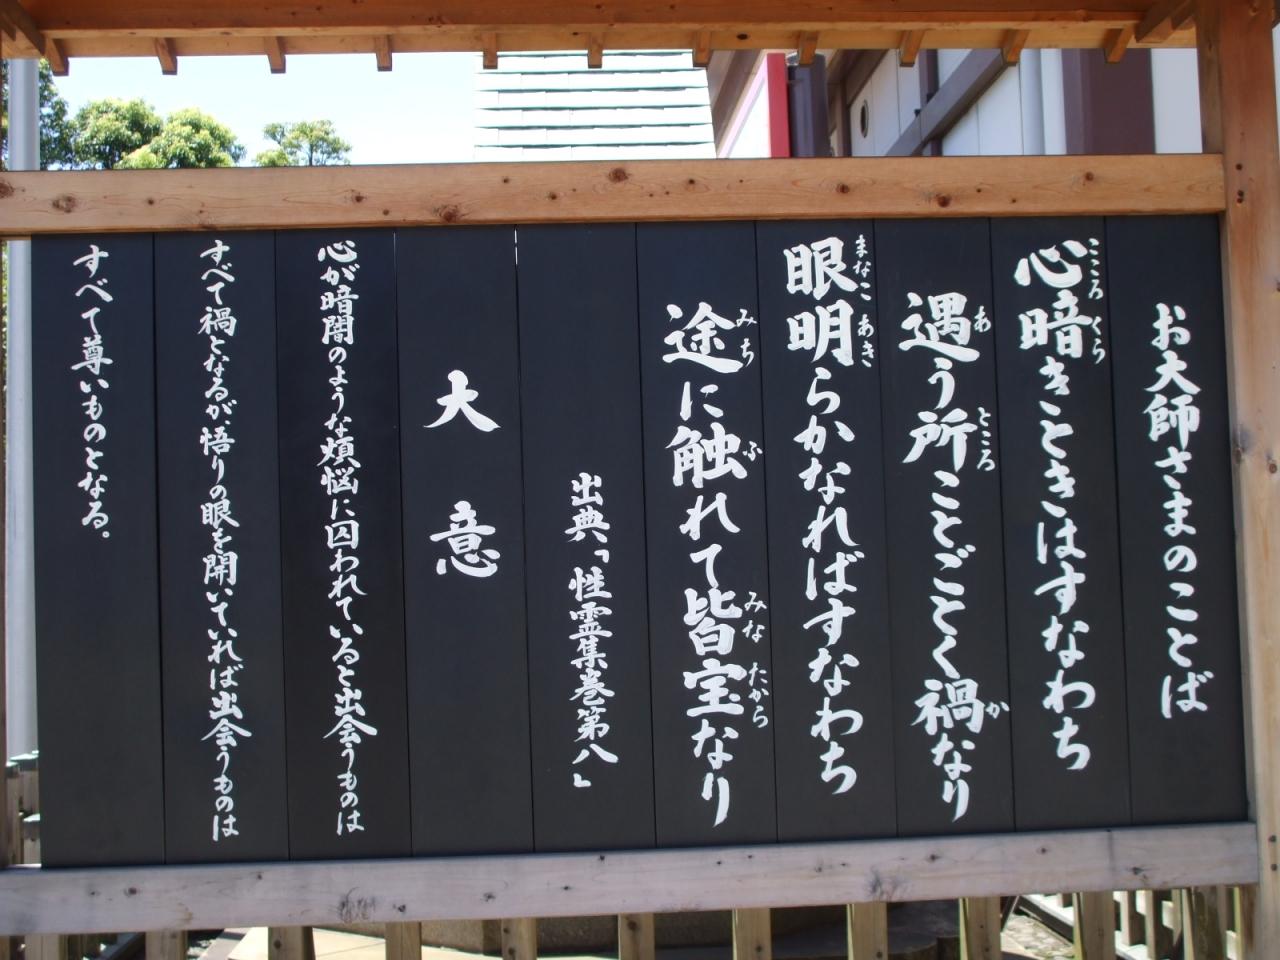 お大師さまのことば
心暗きときはすなわち
遇う所ことごとく禍なり
眼明らかなればすなわち
途に触れて皆宝なり
出典「性霊集巻第八」
大意
心が暗闇のような煩悩に囚われていると出会うものは
すべて禍となるが、悟りの眼を開いていれば出会うものは
すべて尊いものとなる。
こころ くら
あ ところ か
まなこ あき
みち ふ みな たから